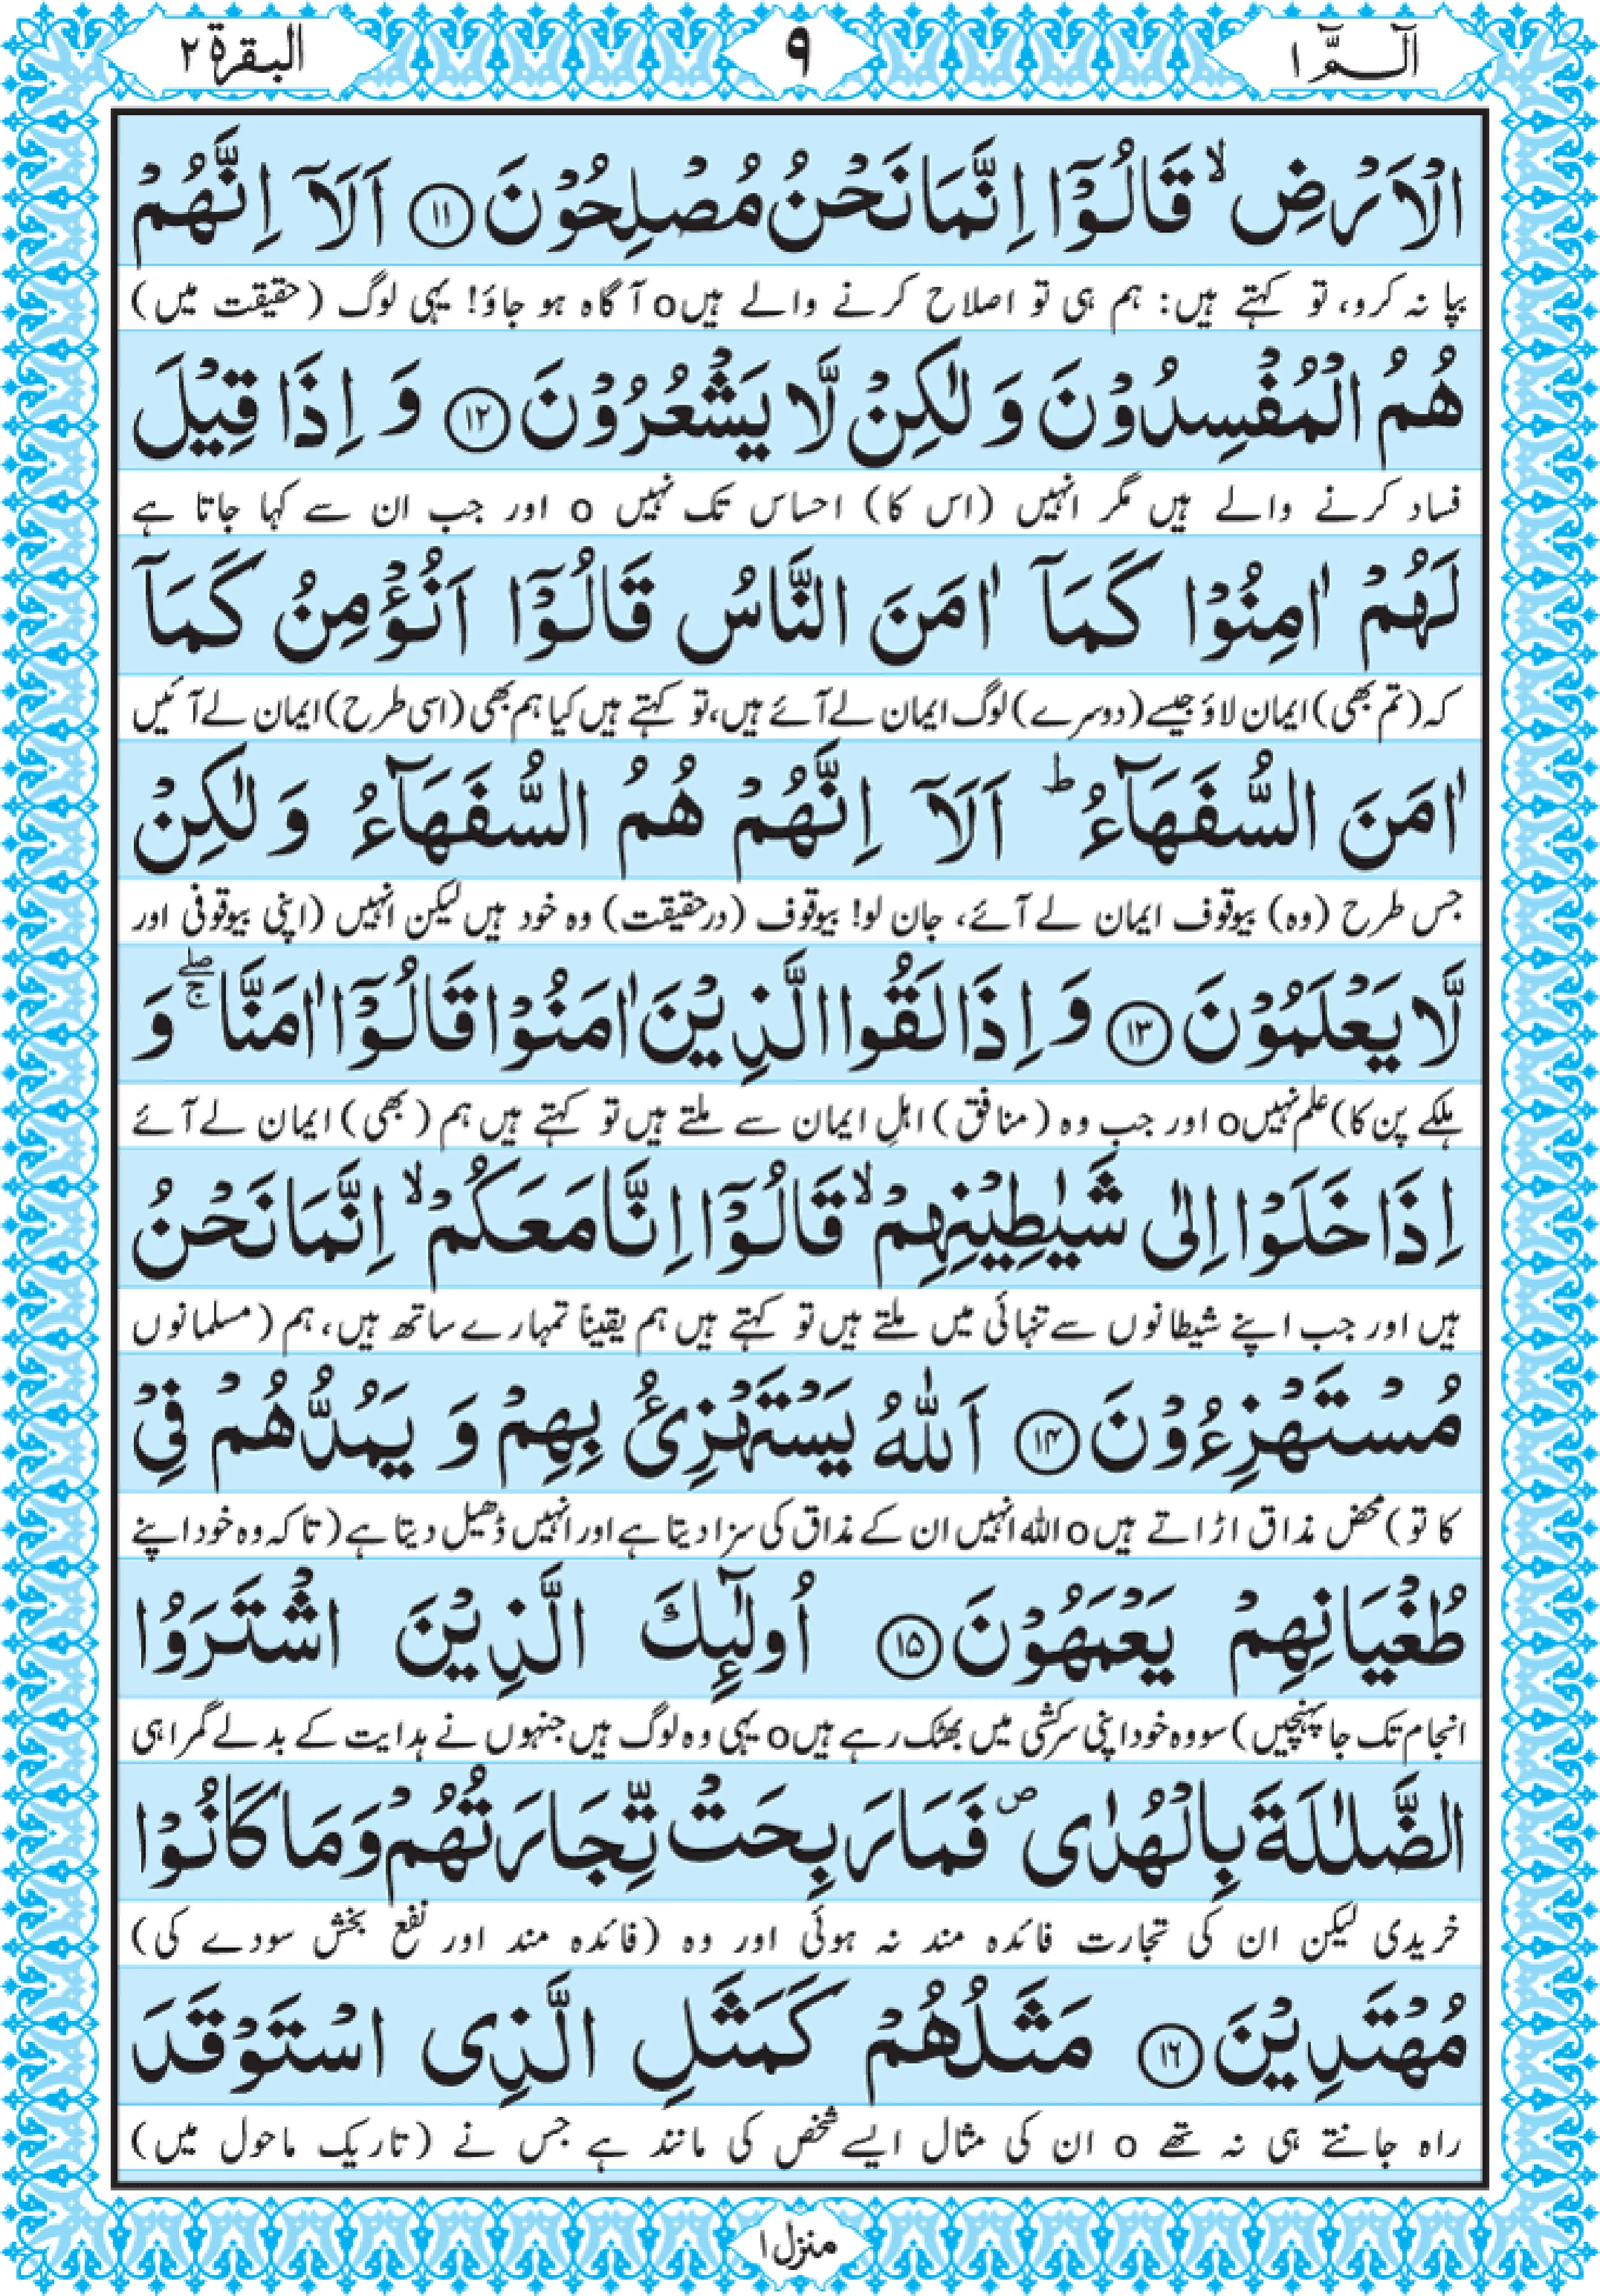 الٓــمّٓ ۱
۹
البقرۃ ۲
الْاَرْضِ ۙ قَالُوْۤا اِنَّمَا نَحْنُ مُصْلِحُوْنَ ﴿۱۱﴾ اَلَاۤ اِنَّهُمْ
بپا نہ کرو، تو کہتے ہیں: ہم ہی تو اصلاح کرنے والے ہیںo آگاہ ہو جاؤ! یہی لوگ (حقیقت میں)
هُمُ الْمُفْسِدُوْنَ وَ لٰكِنْ لَّا يَشْعُرُوْنَ ﴿۱۲﴾ وَ اِذَا قِيْلَ
فساد کرنے والے ہیں مگر انہیں (اس کا) احساس تک نہیں o اور جب ان سے کہا جاتا ہے
لَهُمْ اٰمِنُوْا كَمَاۤ اٰمَنَ النَّاسُ قَالُوْۤا اَنُؤْمِنُ كَمَاۤ
کہ (تم بھی) ایمان لاؤ جیسے (دوسرے) لوگ ایمان لے آئے ہیں، تو کہتے ہیں کیا ہم بھی (اسی طرح) ایمان لے آئیں
اٰمَنَ السُّفَهَآءُ ؕ اَلَاۤ اِنَّهُمْ هُمُ السُّفَهَآءُ وَ لٰكِنْ
جس طرح (وہ) بیوقوف ایمان لے آئے، جان لو! بیوقوف (درحقیقت) وہ خود ہیں لیکن انہیں (اپنی بیوقوفی اور
لَّا يَعْلَمُوْنَ ﴿۱۳﴾ وَ اِذَا لَقُوا الَّذِيْنَ اٰمَنُوْا قَالُوْۤا اٰمَنَّا ۖۚ وَ
ہلکے پن کا) علم نہیںo اور جب وہ (منافق) اہلِ ایمان سے ملتے ہیں تو کہتے ہیں ہم (بھی) ایمان لے آئے
اِذَا خَلَوْا اِلٰى شَيٰطِيْنِهِمْ ۙ قَالُوْۤا اِنَّا مَعَكُمْ ۙ اِنَّمَا نَحْنُ
ہیں اور جب اپنے شیطانوں سے تنہائی میں ملتے ہیں تو کہتے ہیں ہم یقیناً تمہارے ساتھ ہیں، ہم (مسلمانوں
مُسْتَهْزِءُوْنَ ﴿۱۴﴾ اَللّٰهُ يَسْتَهْزِئُ بِهِمْ وَ يَمُدُّهُمْ فِيْ
کا تو) محض مذاق اڑاتے ہیںo اللہ انہیں ان کے مذاق کی سزا دیتا ہے اور انہیں ڈھیل دیتا ہے (تاکہ وہ خود اپنے
طُغْيَانِهِمْ يَعْمَهُوْنَ ﴿۱۵﴾ اُولٰٓئِكَ الَّذِيْنَ اشْتَرَوُا
انجام تک جا پہنچیں) سو وہ خود اپنی سرکشی میں بھٹک رہے ہیںo یہی وہ لوگ ہیں جنہوں نے ہدایت کے بدلے گمراہی
الضَّلٰلَةَ بِالْهُدٰى ۪ فَمَا رَبِحَتْ تِّجَارَتُهُمْ وَمَا كَانُوْا
خریدی لیکن ان کی تجارت فائدہ مند نہ ہوئی اور وہ (فائدہ مند اور نفع بخش سودے کی)
مُهْتَدِيْنَ ﴿۱۶﴾ مَثَلُهُمْ كَمَثَلِ الَّذِى اسْتَوْقَدَ
راہ جانتے ہی نہ تھے o ان کی مثال ایسے شخص کی مانند ہے جس نے (تاریک ماحول میں)
منزل ۱